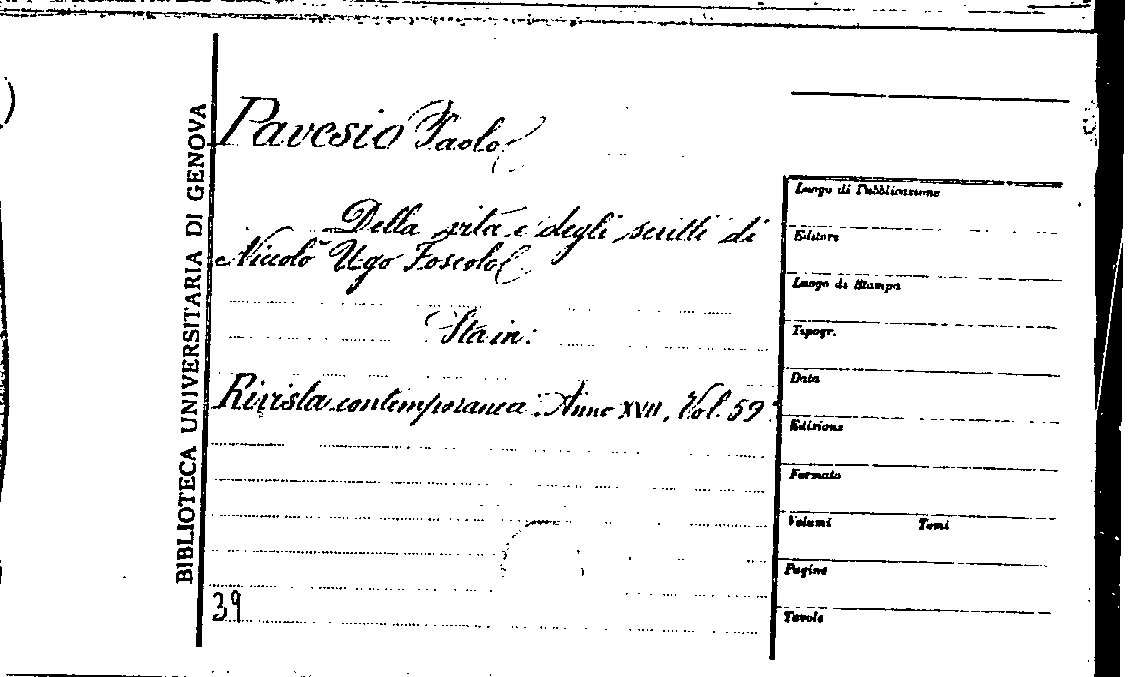 BIBLIOTECA UNIVERSITARIA DI GENOVA
Pavesio Paolo
Della vita e degli scritti di
Niccolò Ugo Foscolo
Sta in:
Rivista contemporanea. Anno XVII, Vol. 59
39
Luogo di Pubblicazione
Editore
Luogo di Stampa
Tipogr.
Data
Edizione
Formato
Volumi Tomi
Pagine
Tavole